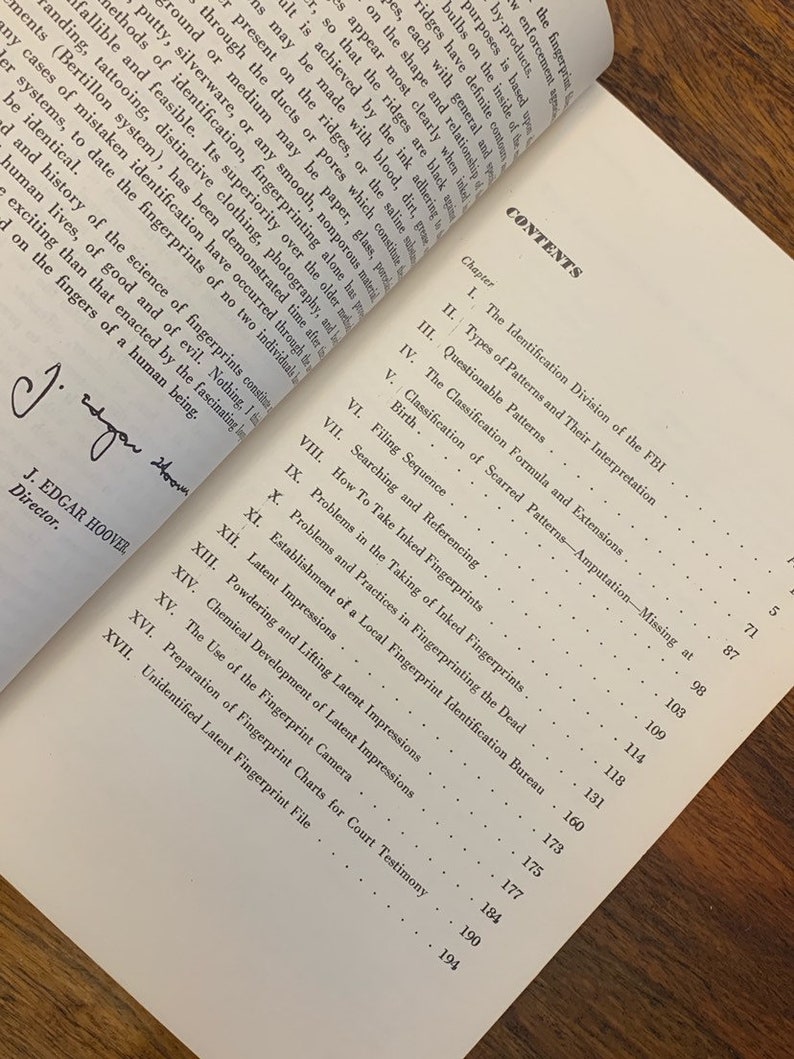 the fingerprint
enforcement
by-products.
purposes is based upon
bulbs on the inside of the
ridges have definite contours
each with general and
on the shape and relationship of
appear most clearly when inked
so that the ridges are black
is achieved by the ink adhering to
may be made with blood, dirt,
present on the ridges, or the saline
through the ducts or pores which constitute
ground or medium may be paper, glass,
putty, silverware, or any smooth, nonporous material
methods of identification, fingerprinting alone has
infallible and feasible. Its superiority over the older
branding, tattooing, distinctive clothing, photography, and
ments (Bertillon system), has been demonstrated time after
cases of mistaken identification have occurred through the
systems, to date the fingerprints of no two individuals
be identical.
and history of the science of fingerprints constitute
human lives, of good and of evil. Nothing, I
exciting than that enacted by the fascinating
on the fingers of a human being.
J. Edgar Hoover
J. EDGAR HOOVER,
Director.
CONTENTS
Chapter
I. The Identification Division of the FBI . . .
II. Types of Patterns and Their Interpretation . . . 5
III. Questionable Patterns . . . 71
IV. The Classification Formula and Extensions . . . 87
V. Classification of Scarred Patterns—Amputation—Missing at
Birth . . . 98
VI. Filing Sequence . . . 103
VII. Searching and Referencing . . . 109
VIII. How To Take Inked Fingerprints . . . 114
IX. Problems in the Taking of Inked Fingerprints . . . 118
X. Problems and Practices in Fingerprinting the Dead . . . 131
XI. Establishment of a Local Fingerprint Identification Bureau . 160
XII. Latent Impressions . . . 173
XIII. Powdering and Lifting Latent Impressions . . . 175
XIV. Chemical Development of Latent Impressions . . . 177
XV. The Use of the Fingerprint Camera . . . 184
XVI. Preparation of Fingerprint Charts for Court Testimony . . 190
XVII. Unidentified Latent Fingerprint File . . . 194